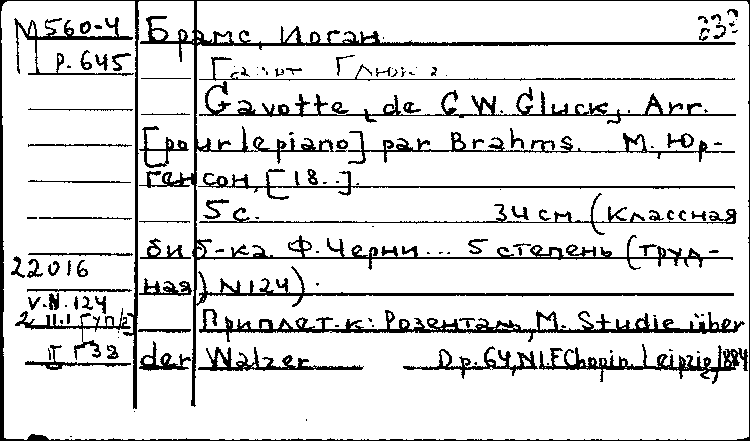 М560-4
р. 645
Брамс, Иоган
Гавот Глюка
Gavotte, de C.W. Gluck,. Arr.
[pour le piano] par Brahms. М., Юр-
генсон, [18..].
5 с. 34 см. (Классная
биб-ка. Ф. Черни... 5 степень (труд-
ная) N124).
22016
V.N. 124
Приплет. к: Розенталь, M. Studie über
der Walzer Op. 64, N1. F Chopin. Leipzig, 1884